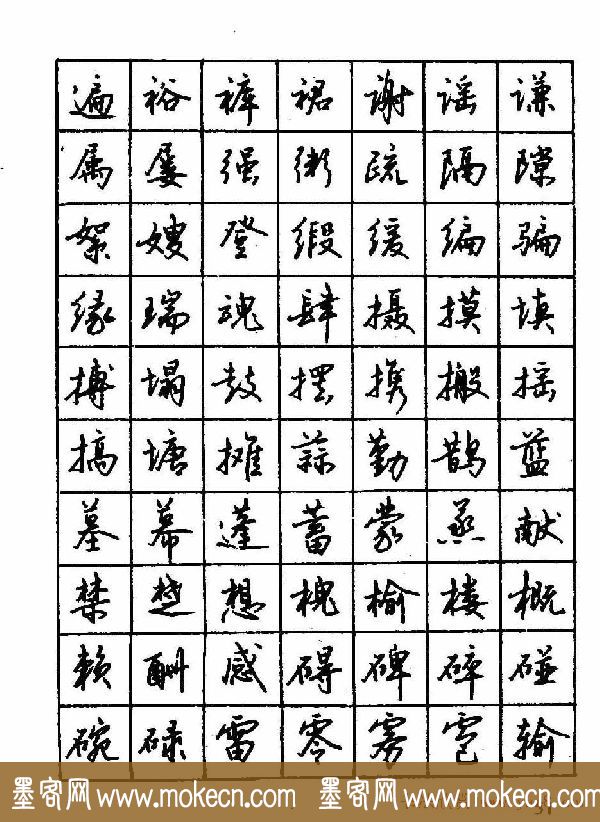 遍裕裤裙谢谣谦
属屡强粥疏隔隙
絮嫂登缎缓编骗
缘瑞魂肆摄摸填
搏塌鼓摆携搬摇
搞塘摊蒜勤鹊蓝
墓幕蓬蓄蒙蒸献
禁楚想槐榆楼概
赖酬感碍碑碎碰
碗碌雷零雾雹输
墨客网 www.mokecn.com 墨客网 www.mokecn.com
31